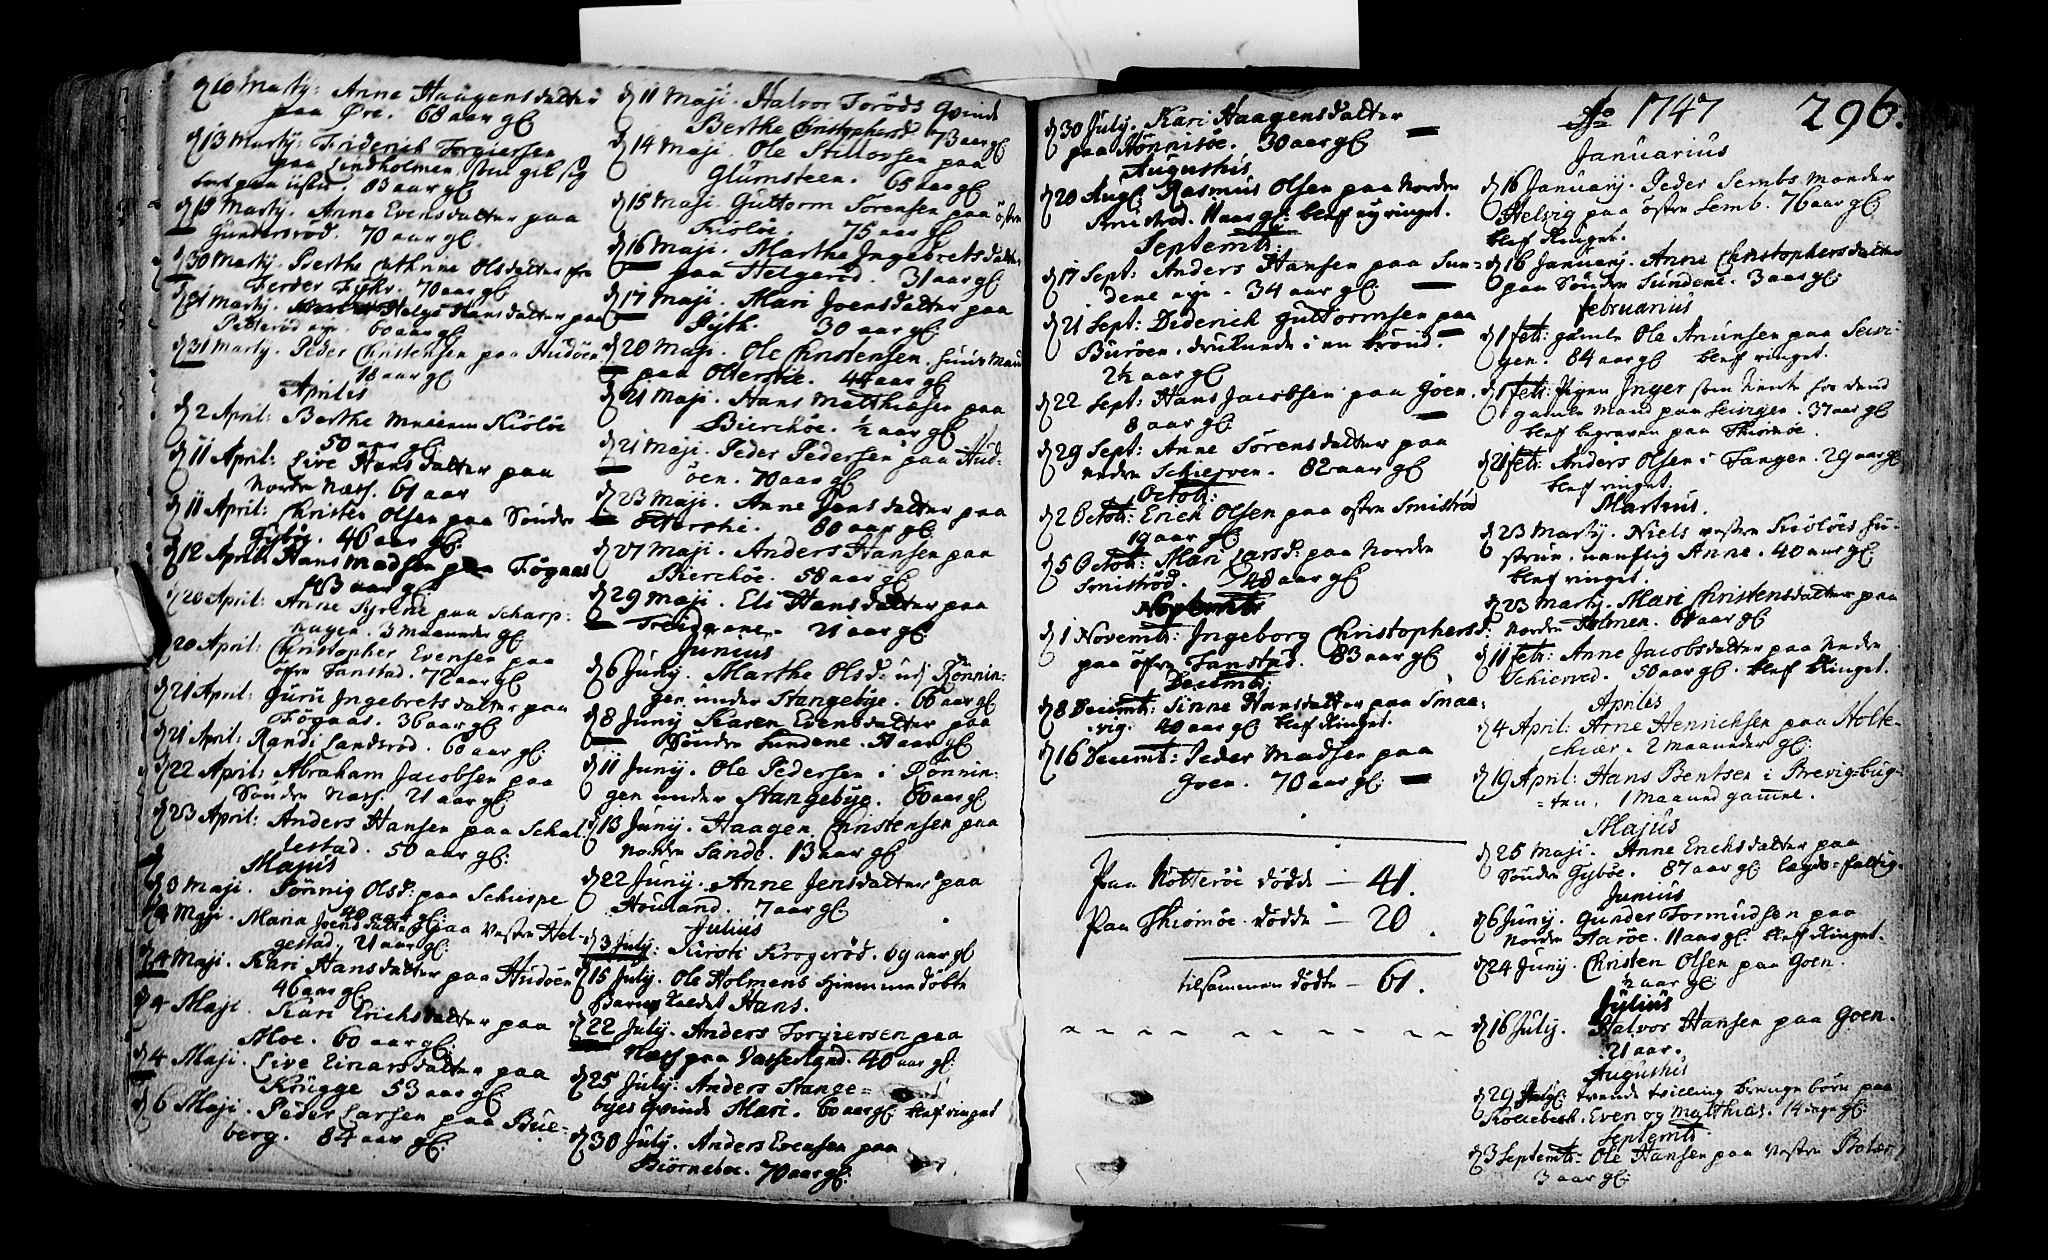 d 10 Martij: Anne Haagensdatter
paa Øre. 68 aar gl
d 13 Martij: Friderich Torgiersen
paa Lindholmen, 83 aar gl
d 19 Martij. Anne Evensdatter paa
Gundersrød. 70 aar gl.
d 30 Martij. Berthe Cathrine Olsdatter fra
Ferder Fyhr. 70 aar gl
d 31 Martij. Helge Hansdatter paa
Petterød 60 aar gl
d 31 Martij. Peder Christensen paa Hudøen
18 aar gl
Aprilis
d 2 April: Berthe Kioløe
50 aar gl.
d 11 April: Live Hansdatter paa
Nordre Næss. 61 aar
d 11 April: Christen Olsen paa Søndre
Gipøe. 46 aar gl:
d 12 April: Hans Madsen paa Føgaas
63 aar gl
d 20 April: Anne Kyrene paa Scharp-
hagen. 3 maaneder gl
d 20 April: Christopher Evensen paa
øfre Fanstad. 72 aar gl
d 21 April: Guru Ingebretsdatter paa
Føgaas. 36 aar gl
d 21 April: Randi Landsrød. 60 aar gl:
d 22 April: Abraham Jacobsen paa
Søndre Næss. 21 aar gl:
d 23 April: Anders Hansen paa Schal-
lestad. 50 aar gl:
Majus
d 3 Maji. Tønnig Olsd: paa Schierpe
40 aar gl:
d 4 Maji. Maria Joensdatter paa Vestre Hel-
gestad. 21 aar gl:
d 4 Maji. Kari Hansdatter paa Hudøen
46 aar gl
d 4 Maji. Kari Erichsdatter paa
Moe. 60 aar gl:
d 4 Maji. Live Einarsdatter paa
Krugge 53 aar gl:
d 6 Maji. Peder Larsen paa Bue-
berg. 84 aar gl:
d 11 Maji. Halvor Torøds Qvinde
Berthe Christophersd 73 aar gl
d 14 Maji. Ole Stillovsen paa
Glumsteen. 65 aar gl
d 15 Maji. Guttorm Sørensen paa østre
Kioløe. 75 aar gl
d 16 Maji. Marthe Ingebretsdatter
paa Helgerød. 31 aar gl
d 17 Maji. Mari Joensdatter paa
30 aar gl
d 20 Maji. Ole Christensen. huus mand
paa Olterskie. 44 aar gl
d 21 Maji. Hans Matthiesen paa
Bierchøe. ½ aar gl
d 21 Maji. Peder Pedersen paa Hud-
øen. 70 aar gl
d 23 Maji. Anne Jensdatter paa
80 aar gl:
d 27 Maji. Anders Hansen paa
Bierchøe. 58 aar gl:
d 29 Maji. Eli Hansdatter paa
21 aar gl:
Junius
d 6 Junij. Marthe Olsd: udj Rønnin-
gen under Stangebye. 66 aar gl
d 8 Junij Karen Evensdatter paa
Søndre Sundene. 50 aar gl
d 11 Junij. Ole Pedersen i Rønnin-
gen under Stangebye. 60 aar gl
d 13 Junij. Haagen Christensen paa
Nordre Sande. 13 aar gl
d 22 Junij. Anne Jensdatter paa
Houland. 7 aar gl
Julius
d 3 July: Kirsti Krogerød. 69 aar gl
d 15 July. Ole Holmens hiemmedøbte
Barn kaldet Hans.
d 22 July. Anders Torgiersen paa
Næss paa Vasserland. 40 aar gl:
d 25 July. Anders Stange-
byes Qvinde Mari. 60 aar gl: blef ringet
d 30 July. Anders Evensen paa
Biørneboe. 70 aar gl:
d 30 July. Kari Haagensdatter
paa Rønnisøe. 30 aar gl
Augustus
d 20 Aug: Rasmus Olsen paa Nordre
Smidsrød. 11 aar gl: blef ey ringet.
Septemb:
d 17 Sept: Anders Hansen paa Sun-
dene 34 aar gl
d 21 Sept: Diderich Guttormsen paa
Burøen. druknede i en brønd.
2½ aar gl
d 22 Sept: Hans Jacobsen paa Goen.
8 aar gl:
d 29 Sept: Anne Sørensdatter paa
nedre Schierven. 82 aar gl
Octob:
d 2 Octob: Erich Olsen paa østre Smidsrød
19 aar gl
d 5 Octob: Mari Larsd: paa Nordre
Smidsrød. 40 aar gl
Novemb:
d 1 Novemb: Ingeborg Christophersd:
paa øfre Fanstad. 83 aar gl
Decemb:
d 8 Decemb: Sinne Hansdatter paa Smaa-
vig. 40 aar gl blef Ringet.
d 16 Decemb: Peder Madsen paa
Goen. 70 aar gl:
Paa Nøtterøe døde — 41.
Paa Thiømøe døde — 20.
tilsammen dødte — 61.
Ao 1747 296.
Januarius
d 16 Januarij. Peder Sembs Moder
Helvig paa østre Semb. 76 aar gl:
blef Ringet.
d 16 Januarij. Anne Christophersdatter
paa Søndre Sundene. 3 aar gl:
Februarius
d 1 feb: gamle Ole Amunsen paa Seivi-
gen. 84 aar gl blef ringet.
d 1 feb: Pigen Inger som tiente for dend
gamle Mand paa Seivigen. 37 aar gl
blef begraven paa Thiømøe.
d 21 feb: Anders Olsen i Fangen. 29 aar gl
blef ringet.
Martius.
d 23 Martij. Niels vestre Kioløes hu-
strue, nafnlig Anne. 40 aar gl:
blef ringet.
d 23 Martij. Mari Christensdatter paa
Nordre Holmen. 61 aar gl
d 11 feb: Anne Jacobsdatter paa Nedre
Schierved. 50 aar gl. blef Ringet.
Aprilis
d 4 April: Arne Henrichsen paa Holte-
chiær. 2 maaneder gl:
d 19 April: Hans Bentsen i Brevig-bug-
ten. 1 Maaned gamel.
Majus
d 25 Maji. Anne Erichsdatter paa
Søndre Gipøe. 87 aar gl. Legds-fattig.
Junius
d 6 Junij. Gunder Formudsen paa
Nordre Aarøe. 11 aar gl: blef Ringet.
d 24 Junij. Christen Olsen paa Goen.
½ aar gl:
Julius
d 16 July. Halvor Hansen paa Goen.
21 aar.
Augustus
d 29 Aug: tvende tvilling drenge børn paa
Kollebech. Even og Matthias. 14 dage gl:
Septemb:
d 3 Septemb: Ole Hansen paa Vestre Bolær
3 aar gl: